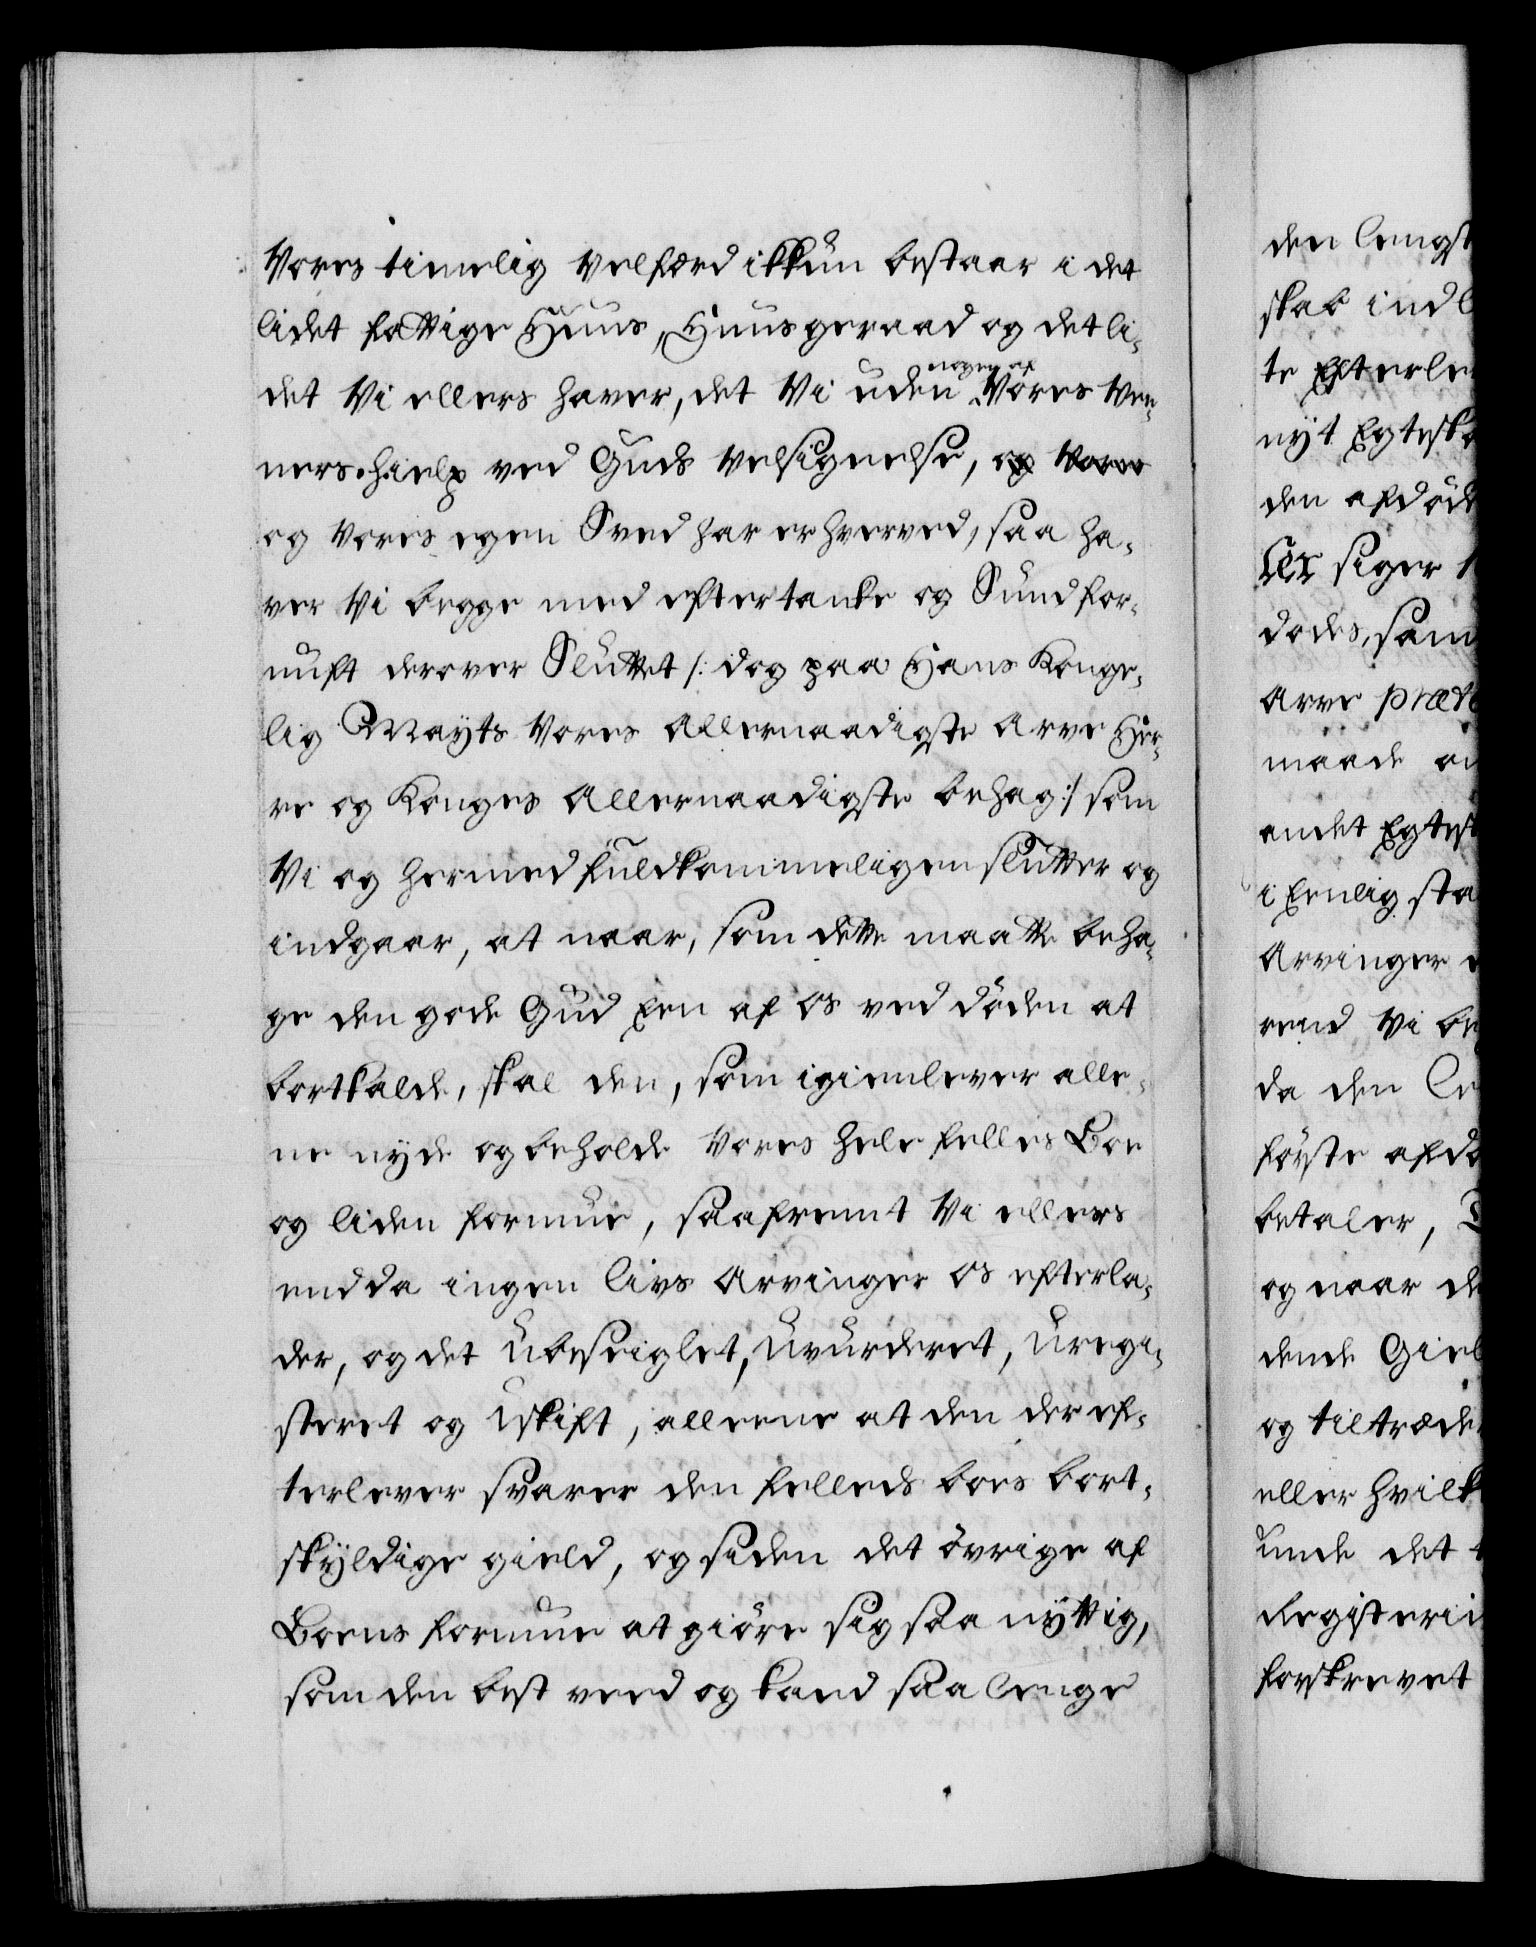 Vores timelig Velfærd ikkun bestaar i det
lidet fattige Huus, Huusgeraad og det li-
det Vi ellers haver, det Vi uden nogen af Vores Ven-
ners hielp ved Guds Velsignelse, og Vores
og Vores egen Sved har erhverved, saa ha-
ver Vi begge med eftertanke og Sundfor-
nuft derover Sluttet /: dog paa Hans Konge-
lig Mayts Vores Allernaadigste Arve Her-
re og Konges Allernaadigste behag :/ som
Vi og hermed fuldkommeligen slutter og
indgaar, at naar, som dette maatte beha-
ge den gode Gud Een af os ved döden at
bortkalde, skal den, som igienlever alle-
ne nyde og beholde Vores hele felles Boe
og liden formue, saafremt Vi ellers
endda ingen Livs Arvinger os efterla-
der, og det Ubeseiglet, Uvurderet, Uregi-
steret og Uskift, alleene at den der ef-
terlever svarer den felleds boes bort-
skyldige gield, og siden det övrige af
Boens formue at giöre sig saa nyttig,
som den best veed og kand saa lenge
den lengst
skab indl
te Efterle
nyt Egtesk
den afdöd
siger
döds, som
Arve præt
maade
andet Egtes
i Eenlig sta
Arvinger
rend Vi be
da den Le
förste afdö
betaler,
og naar de
dende Giel
og tiltræde
eller hvilk
unde det
Registeri
forskrevet